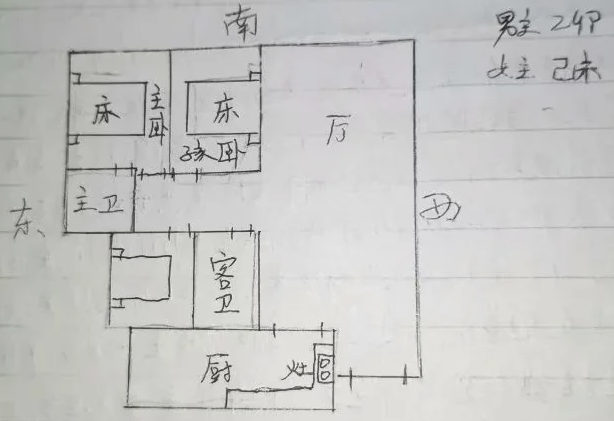 南
男主 乙卯
女主 己未
床
主卧
床
孩卧
厅
主卫
东
西
客卫
厨
灶